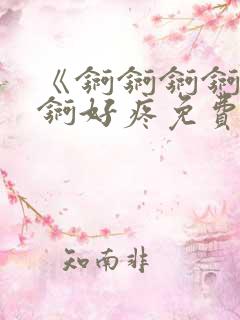 《锕锕锕锕
锕好疼免費
知南非